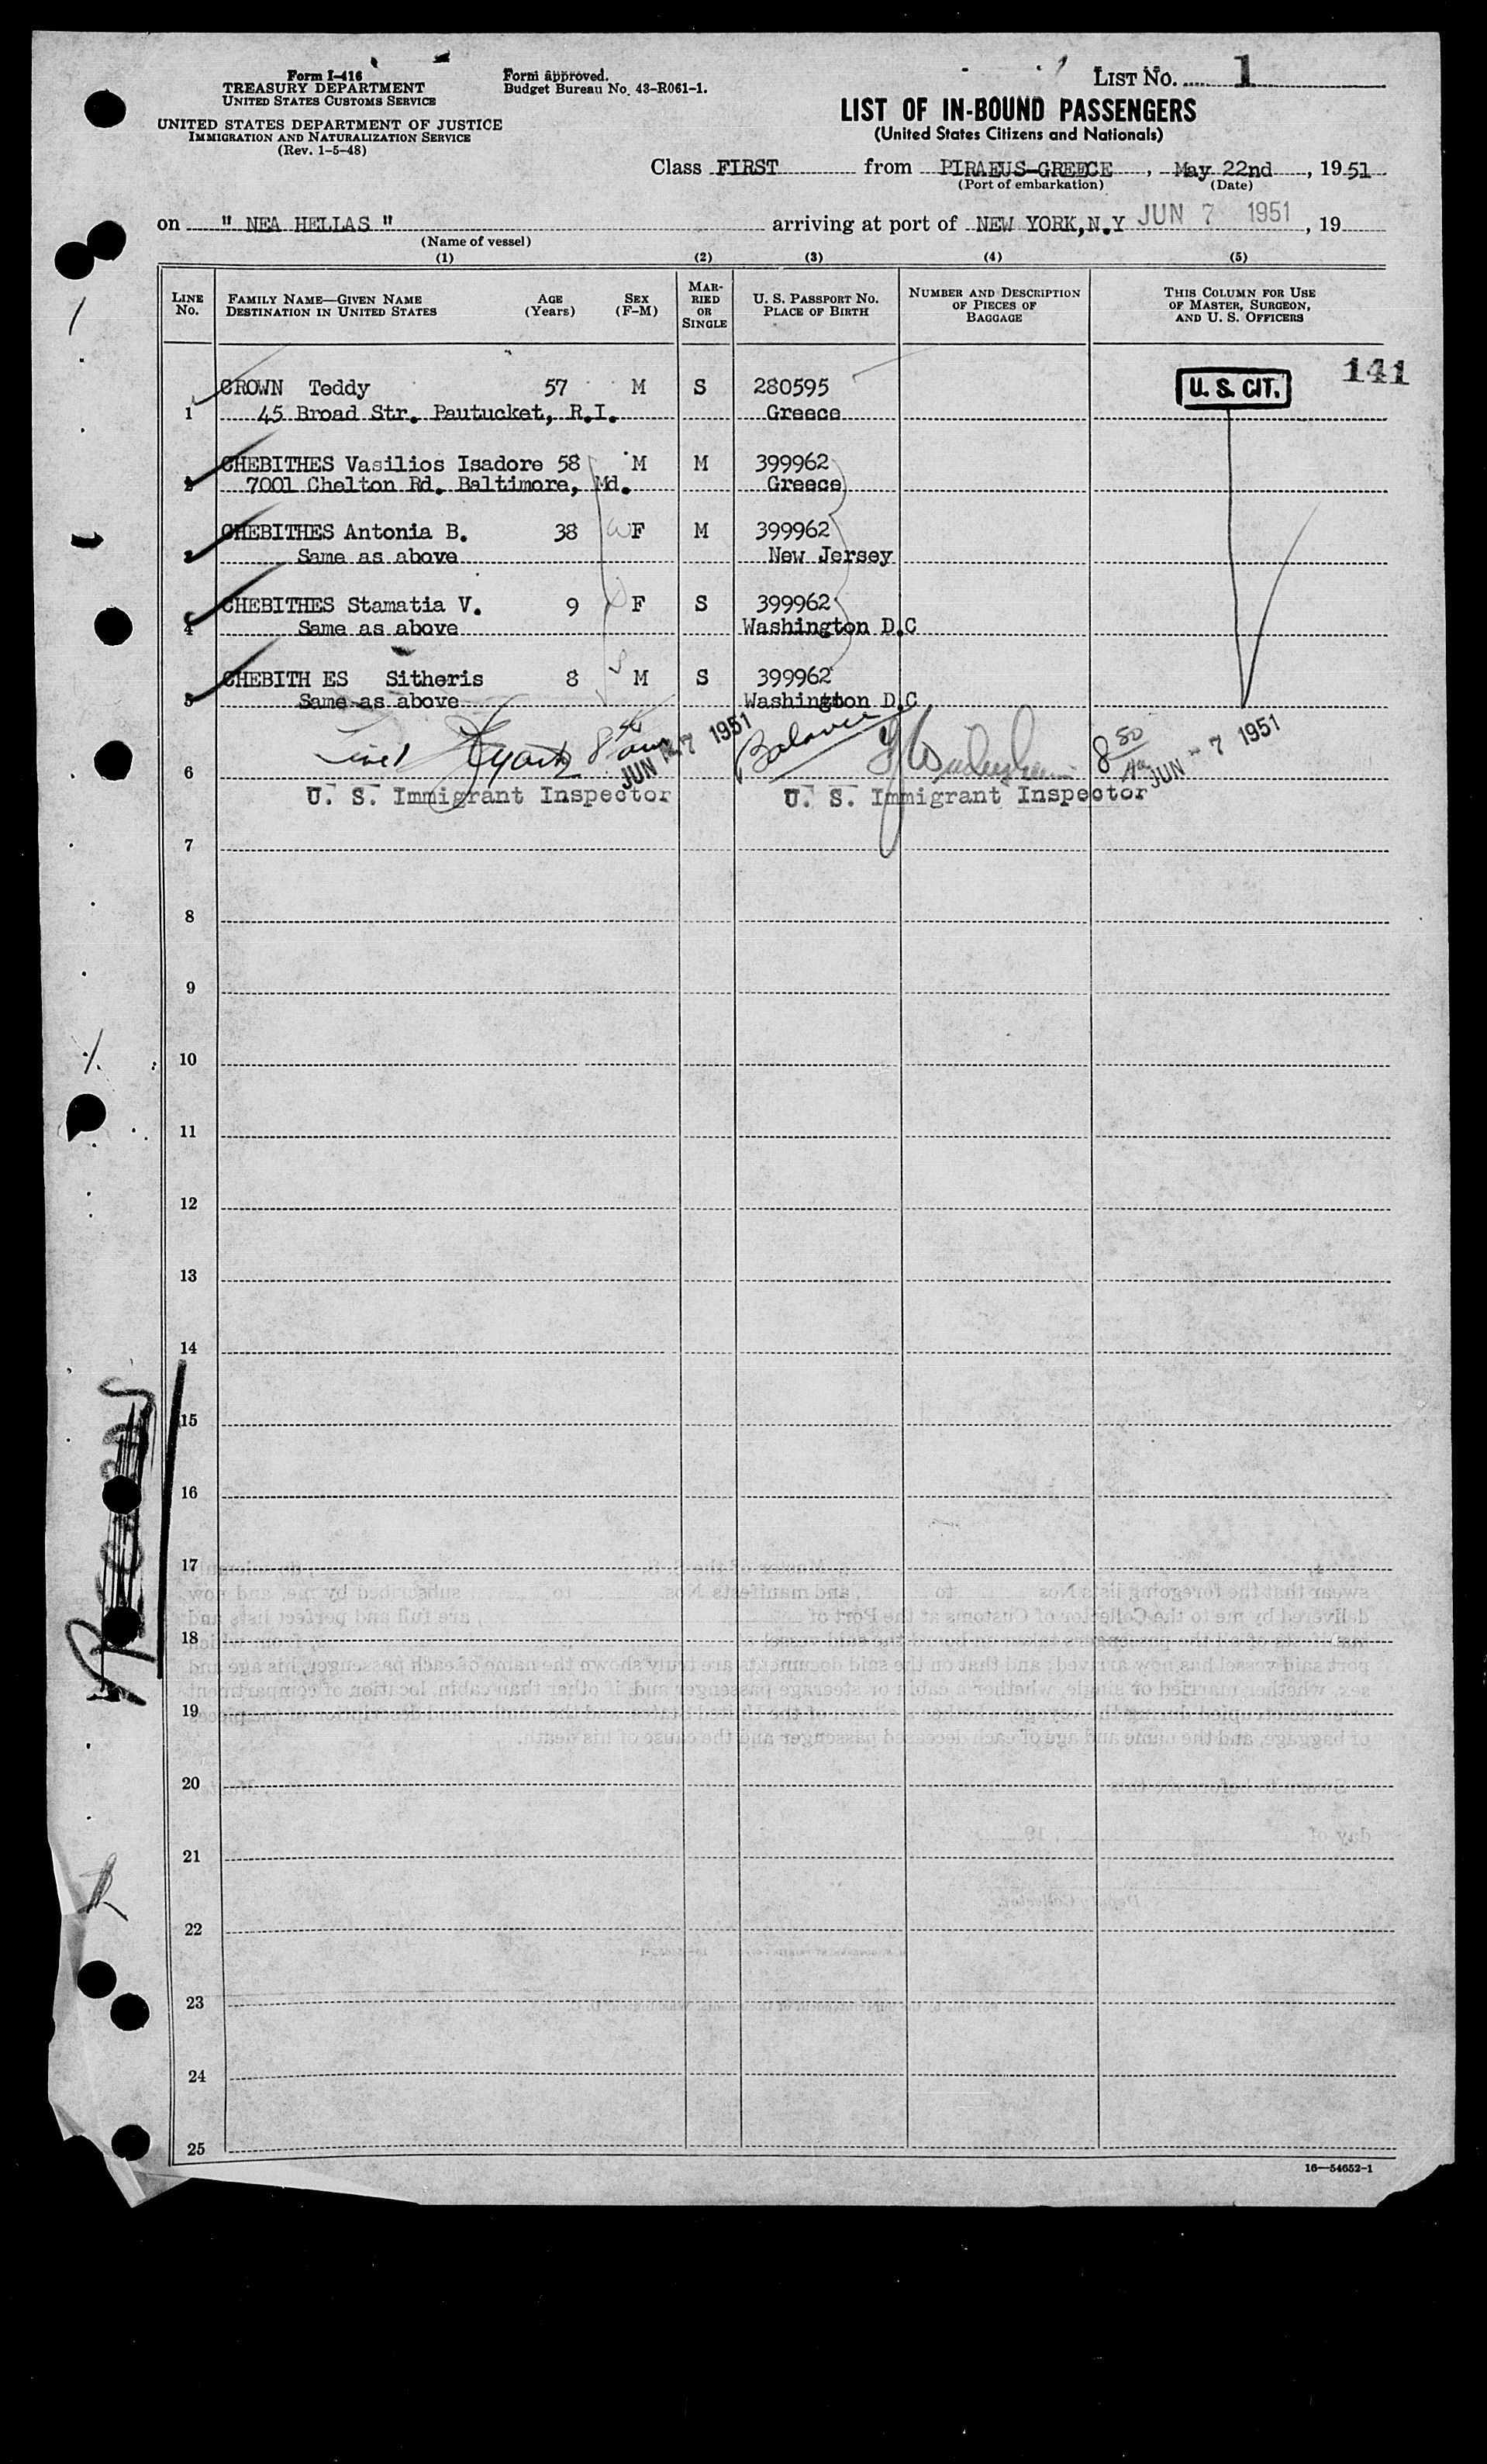 Form I-416
TREASURY DEPARTMENT
UNITED STATES CUSTOMS SERVICE
UNITED STATES DEPARTMENT OF JUSTICE
IMMIGRATION AND NATURALIZATION SERVICE
(Rev. 1-5-48)
Form approved.
Budget Bureau No. 43-R061-1.
LIST No. 1
LIST OF IN-BOUND PASSENGERS
(United States Citizens and Nationals)
Class FIRST from PIRAEUS-GREECE, May 22nd, 1951
(Port of embarkation) (Date)
on " NEA HELLAS " arriving at port of NEW YORK,N.Y JUN 7 1951, 19
(Name of vessel)
(1) (2) (3) (4) (5)
LINE No. FAMILY NAME—GIVEN NAME DESTINATION IN UNITED STATES AGE (Years) SEX (F-M) MARRIED OR SINGLE U. S. PASSPORT No. PLACE OF BIRTH NUMBER AND DESCRIPTION OF PIECES OF BAGGAGE THIS COLUMN FOR USE OF MASTER, SURGEON, AND U. S. OFFICERS
141
CROWN Teddy 57 M S 280595 U. S. CIT.
1 45 Broad Str. Pautucket, R.I. Greece
CHEBITHES Vasilios Isadore 58 M M 399962
2 7001 Chelton Rd. Baltimore, Md. Greece
CHEBITHES Antonia B. 38 W F M 399962
3 Same as above New Jersey
CHEBITHES Stamatia V. 9 F S 399962
4 Same as above Washington D.C
CHEBITH ES Sitheris 8 M S 399962
5 Same as above Washington D.C
JUN 7 1951 Balance 8 50 AM JUN - 7 1951
6
U. S. Immigrant Inspector U. S. Immigrant Inspector
7
8
9
10
11
12
13
14
15
16
17
18
19
20
21
22
23
24
25
16—54652-1